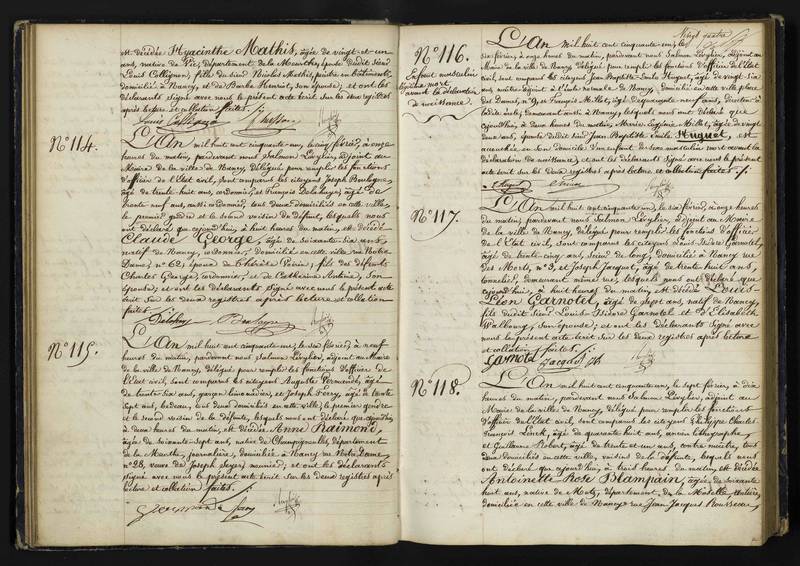 est décédée Hyacinthe Mathis, âgée de vingt-et-un
ans, native de Vic, département de la Meurthe, épouse dudit sieur
Louis Collignon, fille du sieur Nicolas Mathis, peintre en bâtiments,
domicilié à Nancy, et de Barbe Henriot, son épouse; et ont les
déclarants signé avec nous le présent acte écrit sur les deux registres
après lecture et collection faites.
Louis Collignon
N° 114.
L'An mil huit cent cinquante-un, le cinq février, à onze
heures du matin, pardevant nous Salmon Lévylier, adjoint au
Maire de la ville de Nancy, délégué pour remplir les fonctions
d'officier de l'État civil, sont comparus les citoyens Joseph Boulogne,
âgé de trente-huit ans, cordonnier, et François Delahaye, âgé de
trente-neuf ans, aussi cordonnier, tous deux domiciliés en cette ville,
le premier gendre et le second voisin du défunt, lesquels nous
ont déclaré que cejourd'hui, à huit heures du matin, est décédé
Claude George, âgé de soixante-six ans,
natif de Nancy, cordonnier, domicilié en cette ville rue Notre
Dame, n° 62, époux de Thérèse; fils des défunts
Charles George, cordonnier, et de Catherine Antoine, son
épouse; et ont les déclarants signé avec nous le présent acte
écrit sur les deux registres après lecture et collection
faites.
N° 115.
L'An mil huit cent cinquante-un, le six février, à neuf
heures du matin, pardevant nous Salmon Lévylier, adjoint au Maire
de la ville de Nancy, délégué pour remplir les fonctions d'officier de
l'État civil, sont comparus les citoyens Auguste Germand, âgé
de trente-six ans, garçon limonadier, et Joseph Ferry, âgé de trente
sept ans, bedeau, tous deux domiciliés en cette ville; le premier gendre
et le second voisin de la défunte, lesquels nous ont déclaré que cejourd'hui,
à deux heures du matin, est décédée Anne Raimond,
âgée de soixante-sept ans, native de Champigneulle, département
de la Meurthe, journalière, domiciliée à Nancy rue Notre Dame,
n° 28, veuve de Joseph, meunier; et ont les déclarants
signé avec nous le présent acte écrit sur les deux registres après
lecture et collection faites.
Germand Ferry
Vingt quatre
N° 116.
Enfant masculin
mort
avant la déclaration
de naissance.
L'An mil huit cent cinquante-un, le
six février, à onze heures du matin, pardevant nous Salmon Lévylier, adjoint au
Maire de la ville de Nancy délégué pour remplir les fonctions d'officier de l'État
civil, sont comparus les citoyens Jean-Baptiste-Emile Huguet, âgé de vingt-six
ans, maître-adjoint à l'école normale de Nancy, domicilié en cette ville place
des Dames, n° 9, et François Millot, âgé de quarante-neuf ans, directeur de
ladite école, demeurant aussi à Nancy, lesquels nous ont déclaré que
cejourd'hui, à deux heures du matin, Marie Eugénie Millot, âgée de vingt
deux ans, épouse dudit sieur Jean-Baptiste Emile Huguet, est
accouchée en son domicile d'un enfant du sexe masculin mort avant la
déclaration de naissance; et ont les déclarants signé avec nous le présent
acte écrit sur les deux registres après lecture et collection faites.
N° 117.
L'An mil huit cent cinquante-un, le six février, à onze heures
du matin, pardevant nous Salmon Lévylier, adjoint au Maire
de la ville de Nancy, délégué pour remplir les fonctions d'officier
de l'État civil, sont comparus les citoyens Louis-Isidore Garnotel,
âgé de trente-cinq ans, scieur de long, domicilié à Nancy rue
des Morts, n° 3, et Joseph Jacquot, âgé de trente-huit ans,
tonnelier, demeurant même rue; lesquels nous ont déclaré que
cejourd'hui, à huit heures du matin, est décédé Louis-
Léon Garnotel, âgé de sept ans, natif de Nancy,
fils dudit sieur Louis-Isidore Garnotel et d'Elisabeth
Walbourg, son épouse; et ont les déclarants signé avec
nous le présent acte écrit sur les deux registres après lecture
et collection faites.
Garnotel Jacquot
N° 118.
L'An mil huit cent cinquante-un, le sept février, à dix
heures du matin, pardevant nous Salmon Lévylier, adjoint au
Maire de la ville de Nancy, délégué pour remplir les fonctions
d'officier de l'État civil, sont comparus les citoyens Philippe Charles
François, âgé de quarante-huit ans, ancien lithographe,
et Guillaume Robert, âgé de trente-et-un ans, contre-maître, tous
deux domiciliés en cette ville, voisins de la défunte, lesquels nous
ont déclaré que cejourd'hui, à trois heures du matin, est décédée
Antoinette-Rose Blampain, âgée de soixante
huit ans, native de Metz, département de la Moselle, rentière,
domiciliée en cette ville de Nancy rue Jean-Jacques Rousseau,